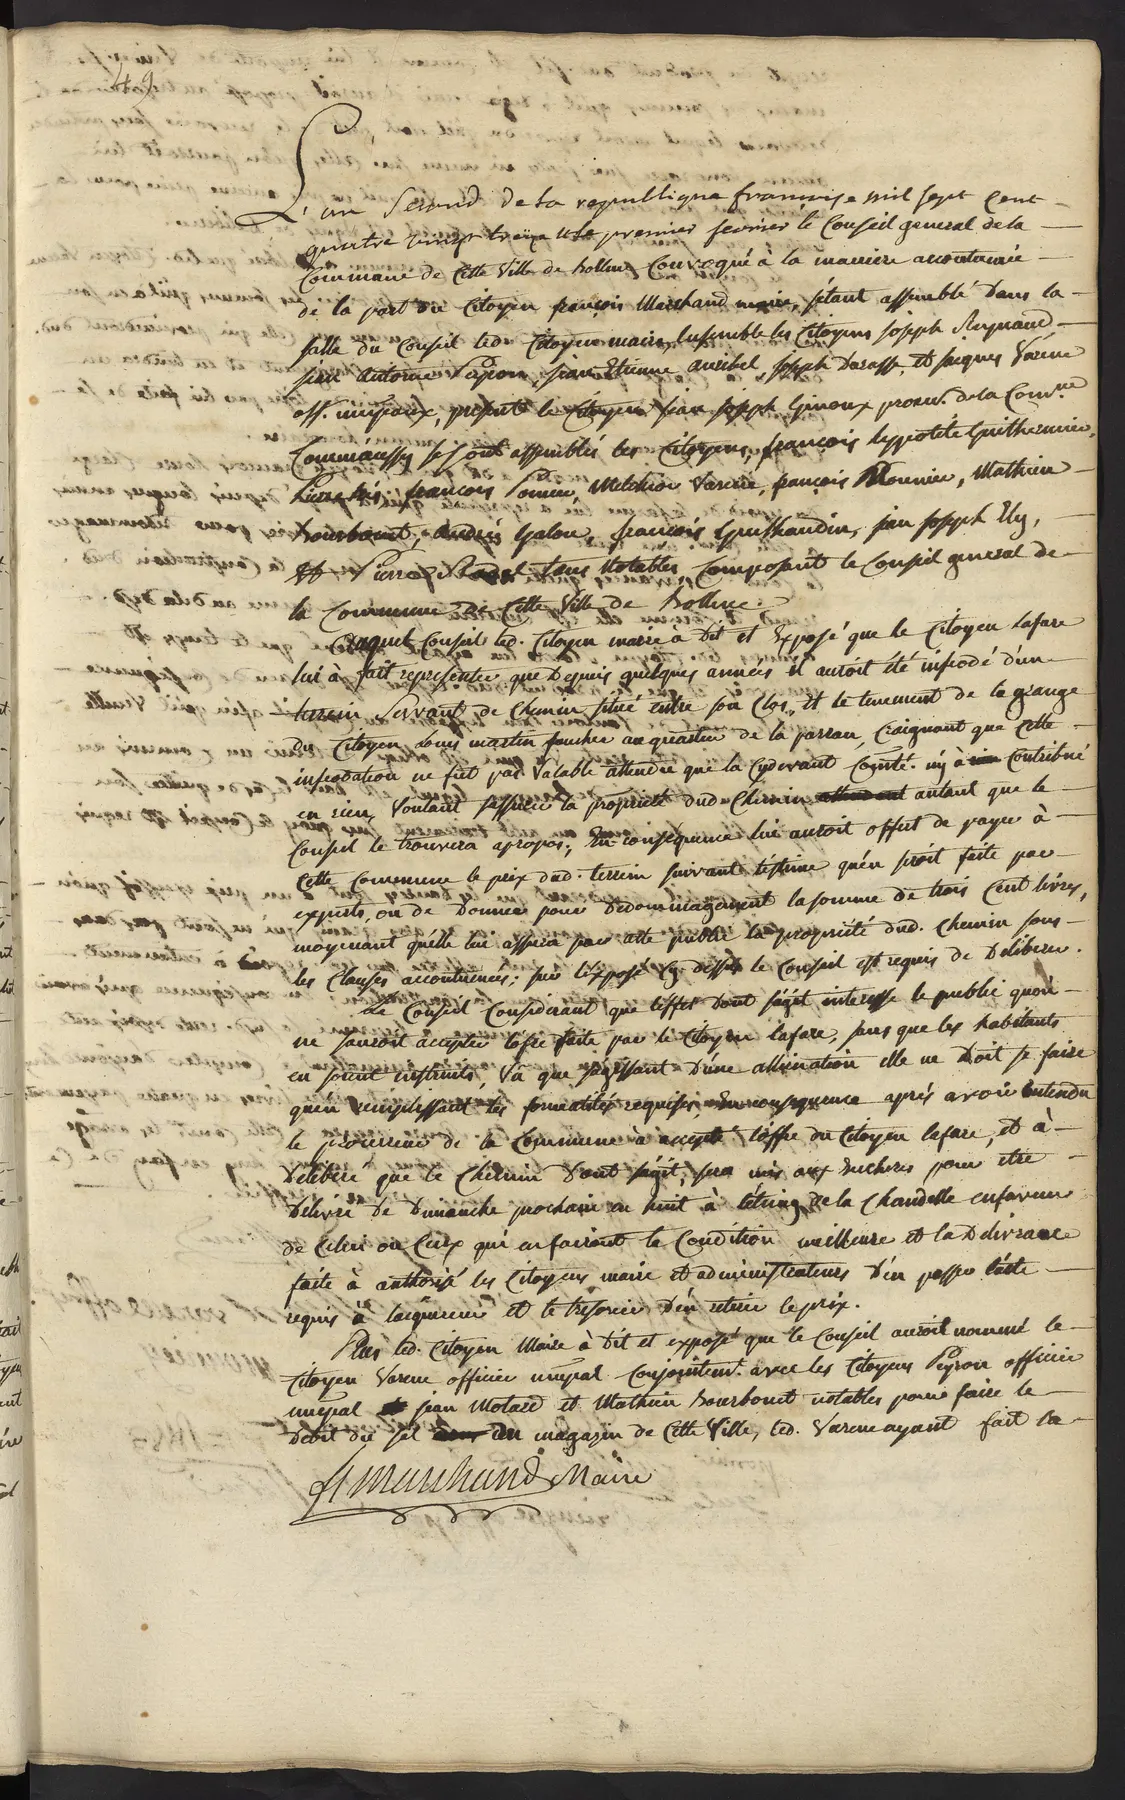 49
L'an Second de la republique francoise mil sept Cent
quatre vingt treize & le premier fevrier le Conseil general de la
Commune de Cette Ville de Bollene Convoqué à la maniere accoutumée
de la part du Citoyen françois Marchand maire, s'étant assemblé Dans la
salle du Conseil led. Citoyen maire, Ensemble les Citoyens joseph Reynaud
jean antoine Peyron, jean Etienne auribel, joseph Darasse, Et jacques Varene
off. mupaux, present le Citoyen jean joseph Giroux procur. de la Com.ne
Commune se sont assemblés les Citoyens, françois hyppolite Guilhermier,
Pierre françois Melchior Varene, françois Mounier, Mathieu
Bourbouet, André Galon, françois jean joseph Ely,
Pierre tous Notables Composant le Conseil general de
la Commune de Cette Ville de Bollene.
Auquel Conseil led. Citoyen maire à Dit et Exposé que le Citoyen Lafare
lui à fait representer que Depuis quelques années il auroit été infeodé d'un
terrein Servant de Chemin situé entre son Clos, et le tenement de la grange
du Citoyen Louis martin au quartier de la Craignant que Cette
infeodation ne fut pas Valable attendu que la Cydevant Comté n'y à Contribué
en rien, Voulant s'assurer la propriété dud. Chemin autant que le
Conseil le trouvera apropos; En Consequence lui auroit offert de payer à
Cette Commune le prix dud. terrein suivant l'estime qu'en seroit faite par
experts, ou de Donner pour Dedommagement la somme de trois Cent livres,
moyenant qu'elle lui assura par acte public la propriété dud. Chemin sous
les Clauses accoutumées; sur l'exposé Cy dessus le Conseil est requis de Deliberer.
Le Conseil Considerant que l'effet dont s'agit interesse le public qu'on
ne sauroit accepter l'ofre faite par le Citoyen lafare, sans que les habitants
en soient instruits, Vû que s'agissant D'une allienation elle ne Doit se faire
qu'en remplissant les formalités requises, En consequence aprés avoir Entendu
le procureur de la Commune à accepté l'offre du Citoyen lafare, et à
Deliberé que le Chemin Dont s'agit, sera mis aux Encheres pour etre
Délivré De Dimanche prochain en huit à l'éteing de la Chandelle en faveur
de Celui ou Ceux qui en fairont la Condition meilleure et la Delivrance
faite à authorisé les Citoyens maire et administrateurs D'en passer l'acte
requis à l'acquereur et le tresorier D'en retirer le prix.
Plus led. Citoyen Maire à Dit et exposé que le Conseil auroit nommé le
Citoyen Varene officier mupal Conjointemt. avec les Citoyens Peyron officier
mupal jean Molard et Mathieu Bourbouet notables pour faire le
Debit du sel du magazin de Cette Ville, led. Varene ayant fait la
fs Marchand Maire